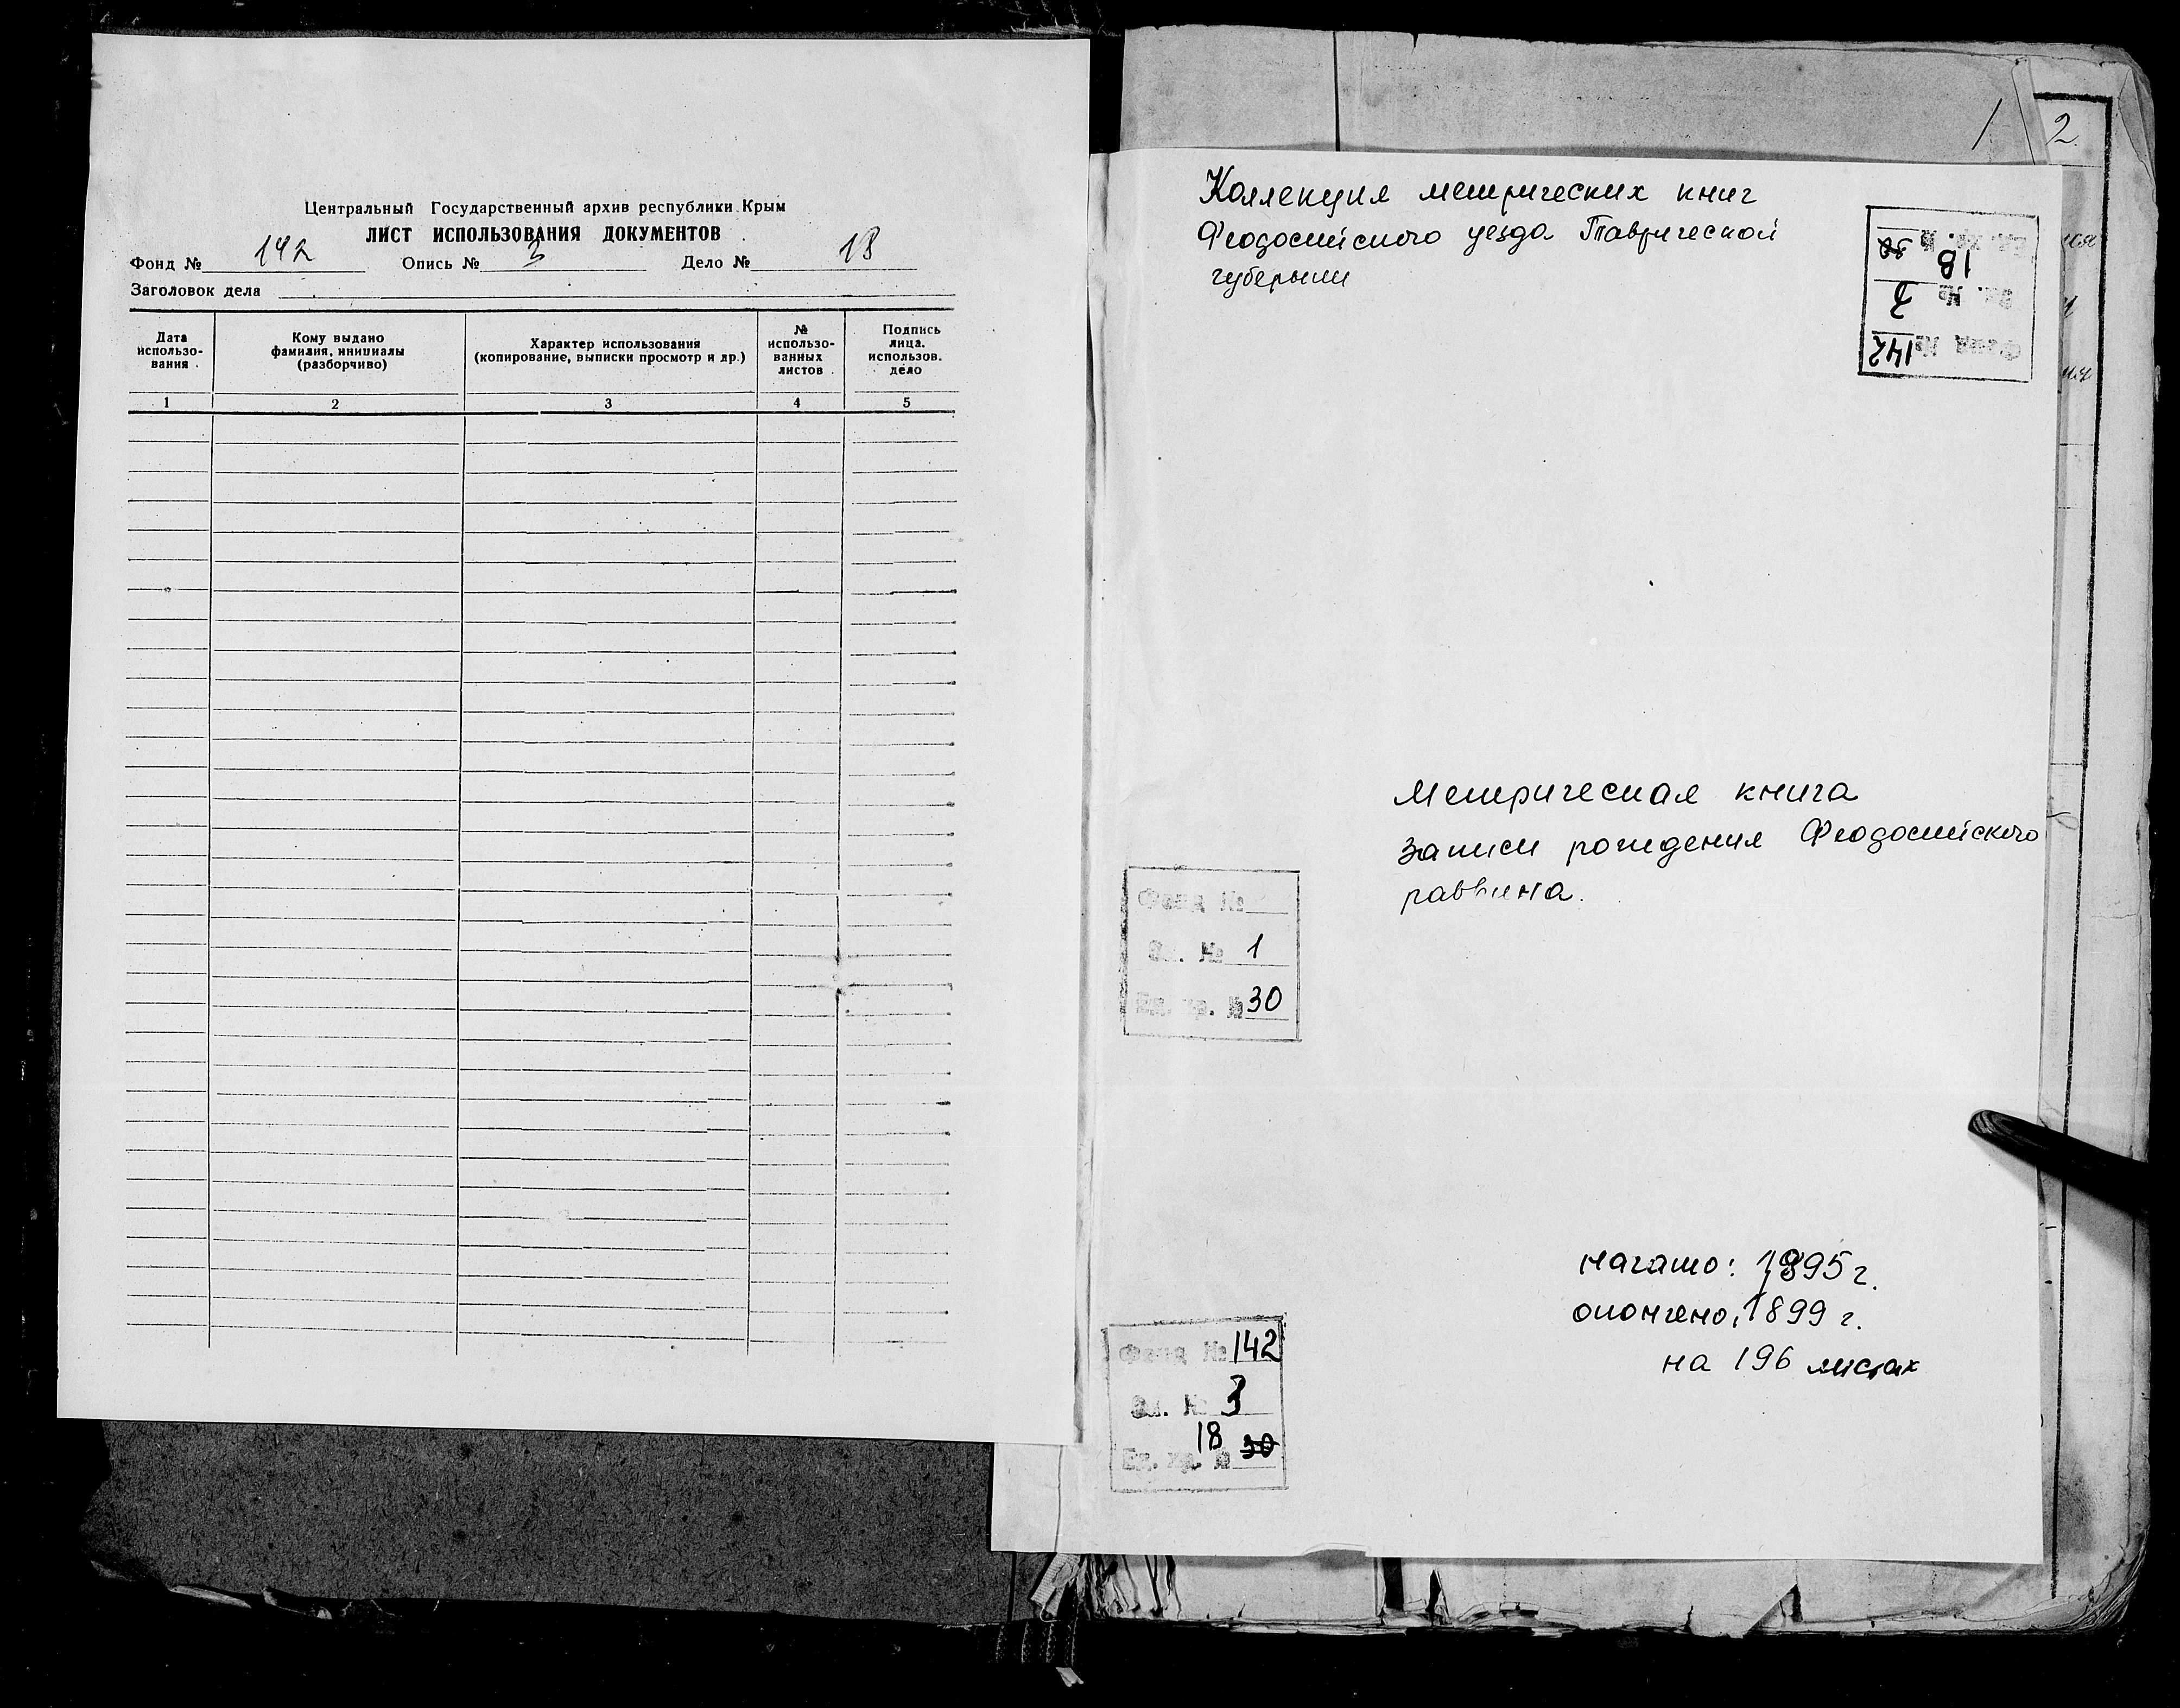 Центральный Государственный архив республики Крым
ЛИСТ ИСПОЛЬЗОВАНИЯ ДОКУМЕНТОВ
Фонд № 142 Опись № 3 Дело № 18
Заголовок дела
Дата использо-вания
Кому выдано фамилия, инициалы (разборчиво)
Характер использования (копирование, выписки просмотр и др.)
№ использо-ванных листов
Подпись лица. использов. дело
1 2 3 4 5
1
2.
Коллекция метрических книг
Феодосийского уезда Таврической
губернии
Фонд № 142
Оп. № 3
Ед. хр. № 18 30
Метрическая книга
записи рождения Феодосийского
раввина.
Фонд №
Оп. № 1
Ед. хр. № 30
начато: 1895 г.
окончено: 1899 г.
на 196 листах
Фонд № 142
Оп. № 3
Ед. хр. № 18 30